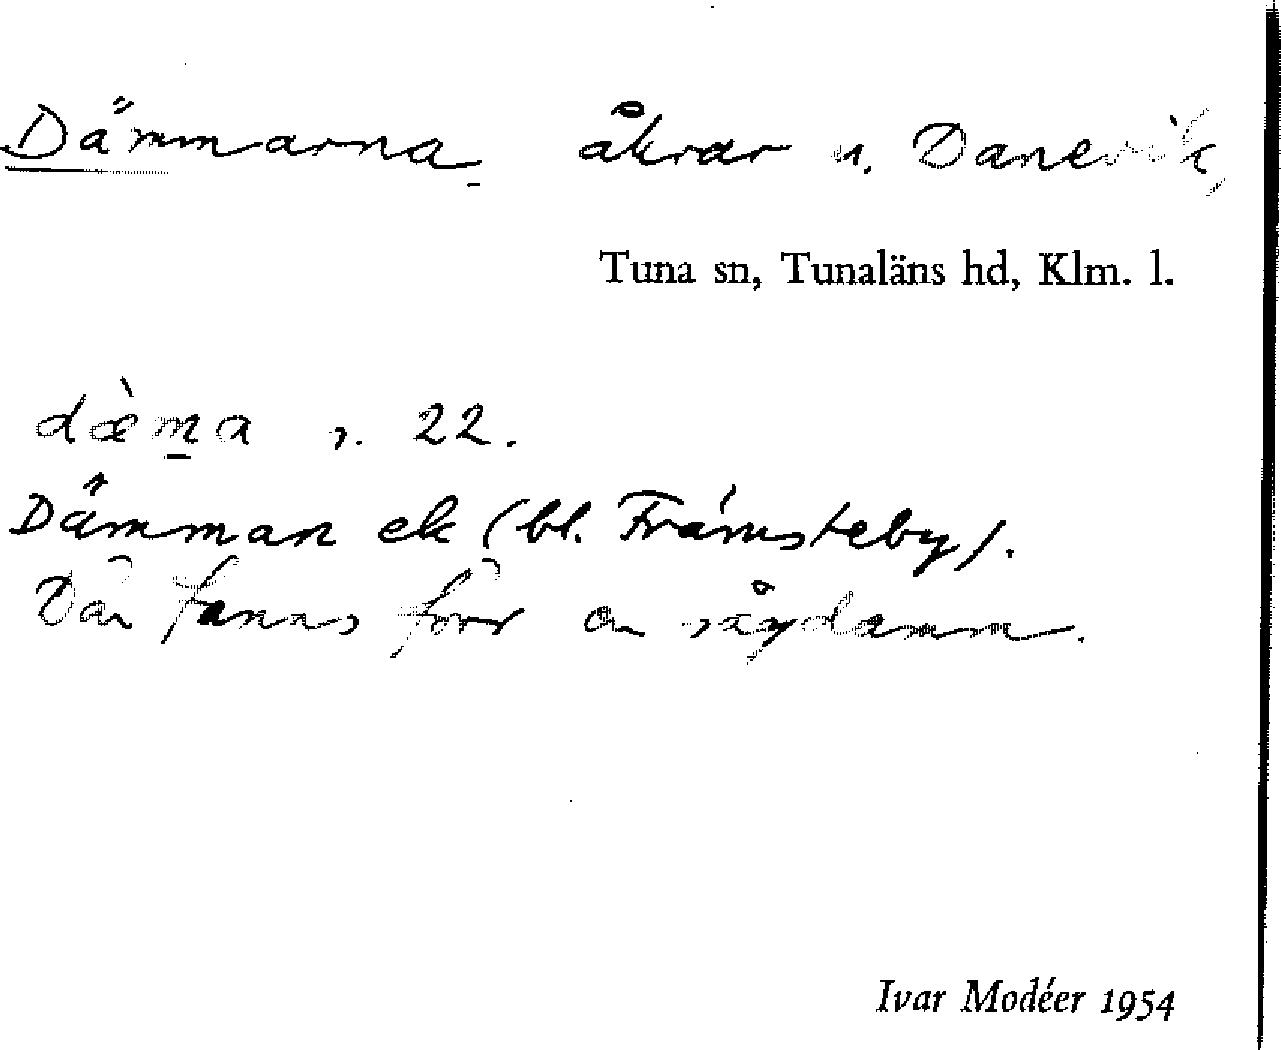 Dämmarna åkrar u. Danevik,
Tuna sn, Tunaläns hd, Klm. l.
dæ̀m̲a r. 22.
Dämman ek (bl. Främsteby).
Där fanns förr en sågdamm.
Ivar Modéer 1954